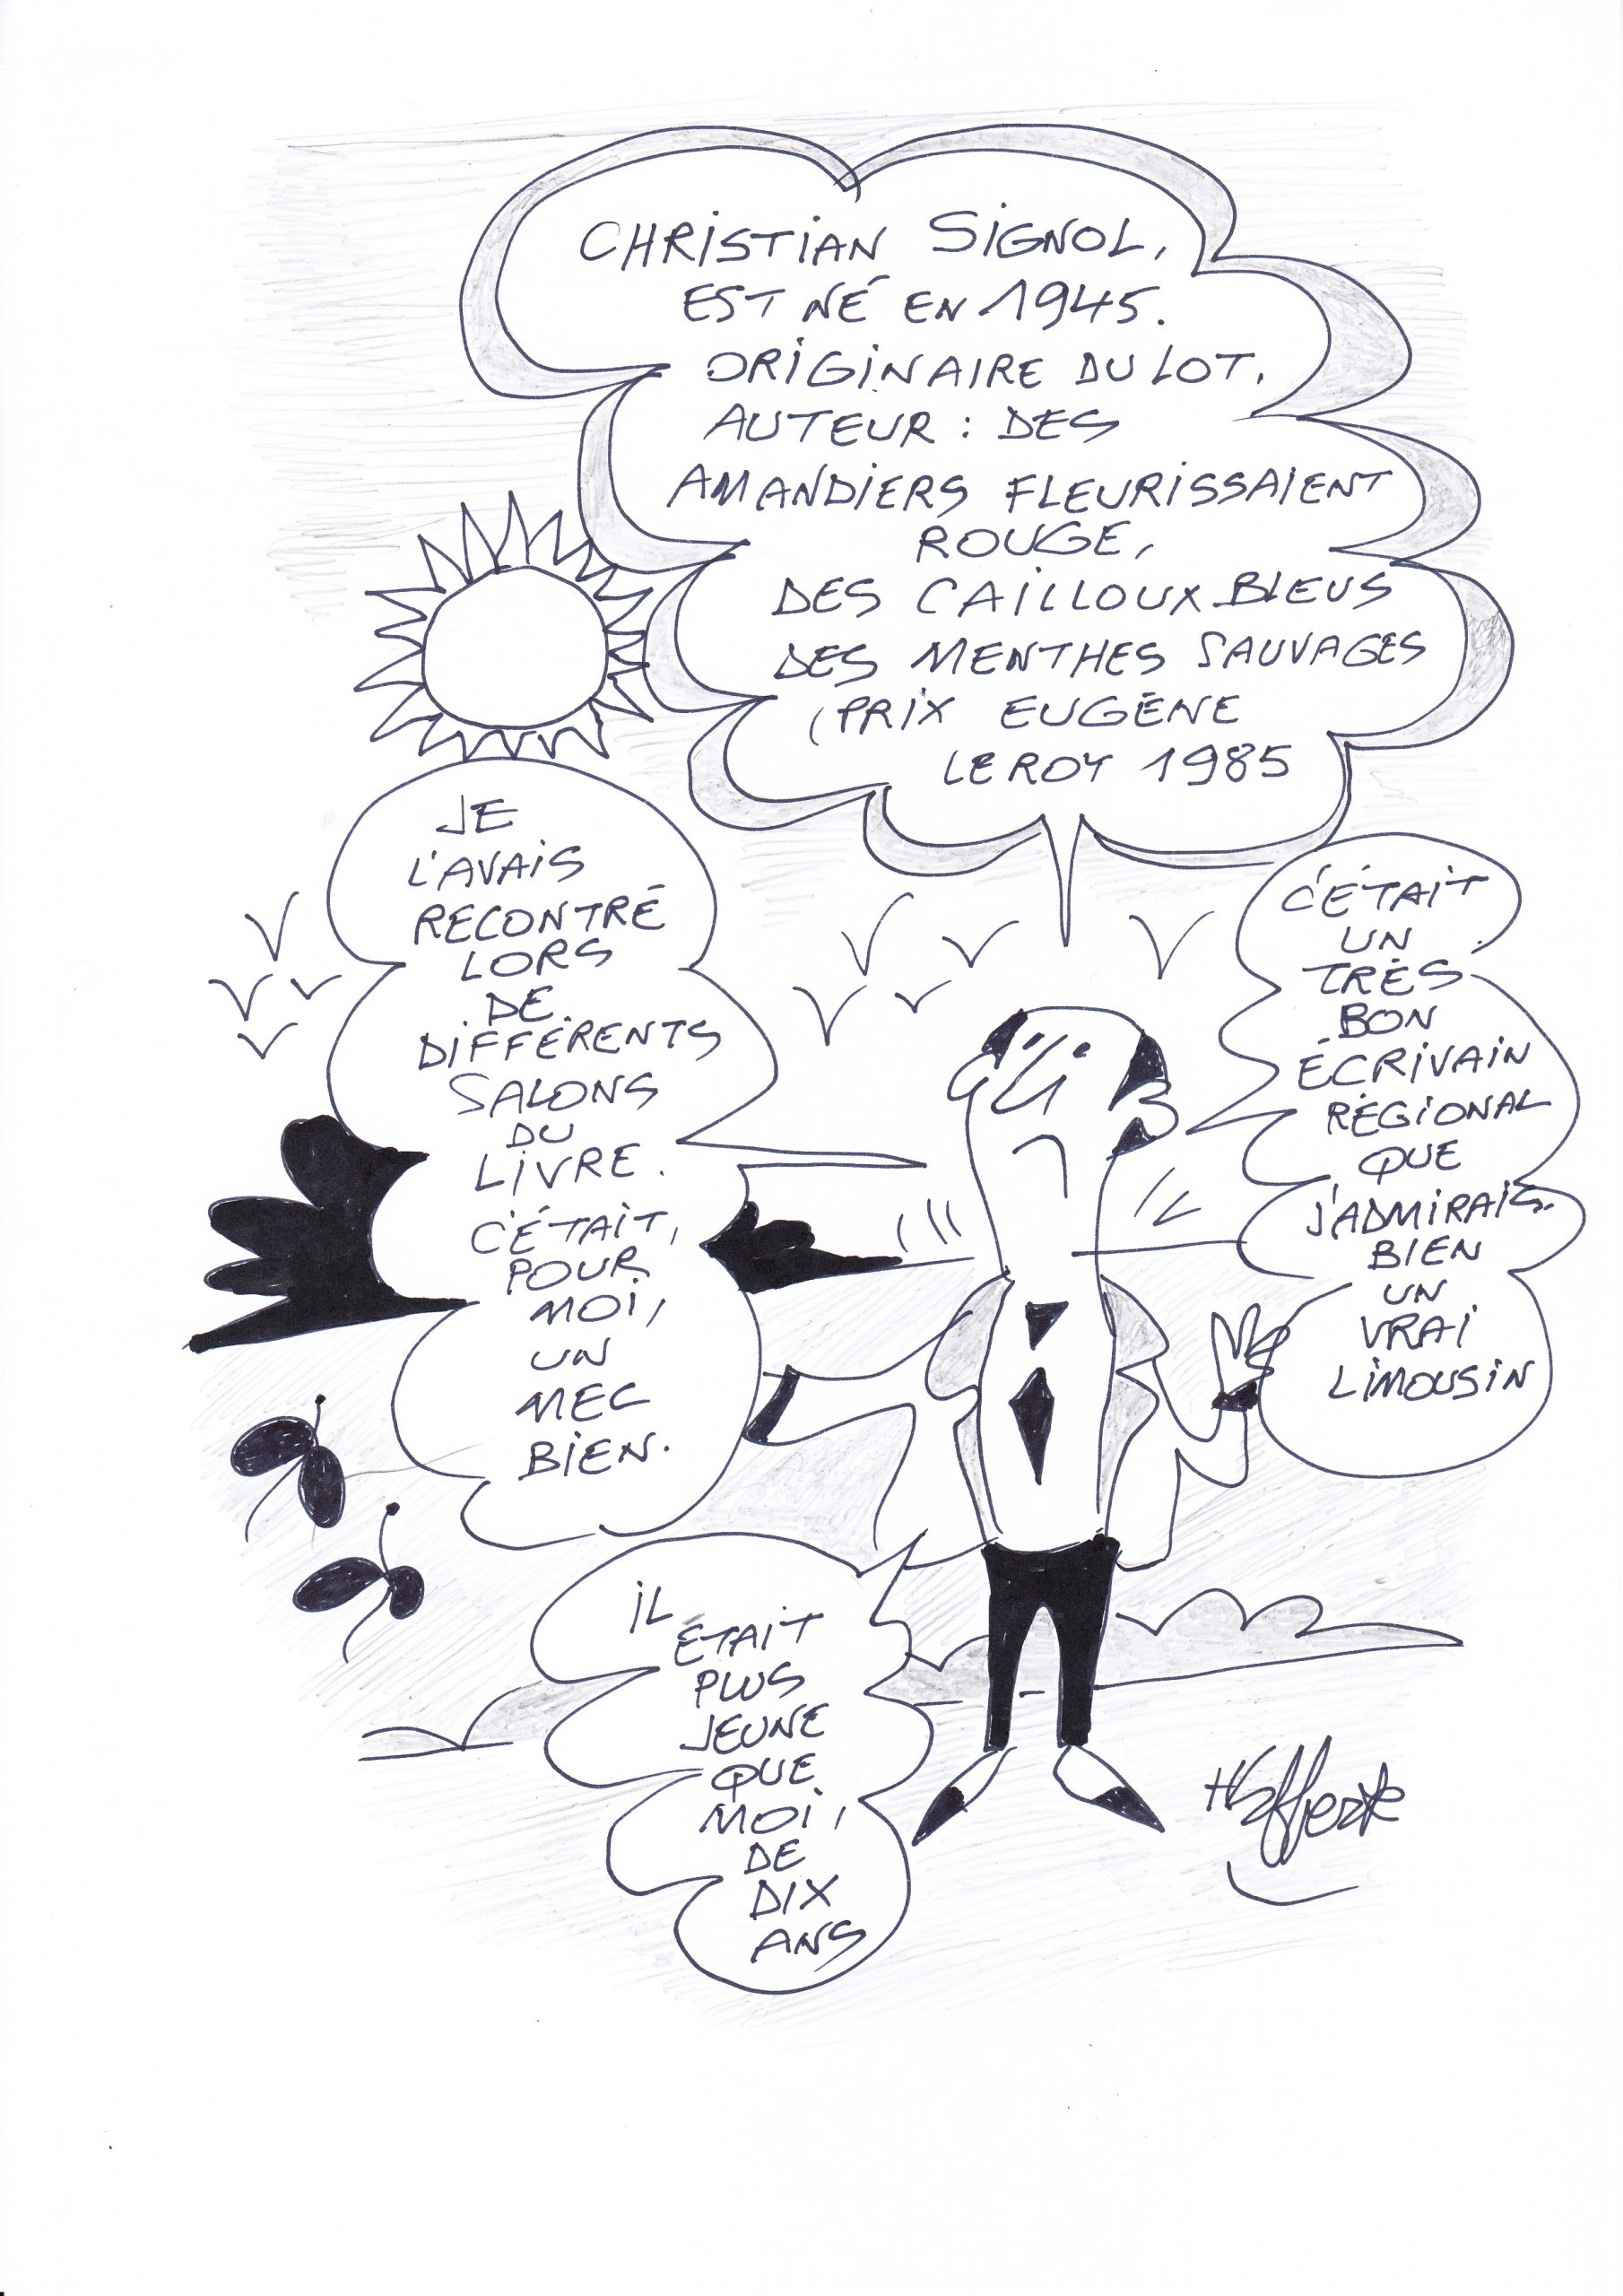 CHRISTIAN SIGNOL,
EST NÉ EN 1945.
ORIGINAIRE DU LOT.
AUTEUR : DES
AMANDIERS FLEURISSAIENT
ROUGE,
DES CAILLOUX BLEUS
DES MENTHES SAUVAGES
(PRIX EUGÈNE
LE ROY 1985
JE
L'AVAIS
RECONTRÉ
LORS
DE
DIFFÉRENTS
SALONS
DU
LIVRE.
C'ÉTAIT,
POUR
MOI,
UN
MEC
BIEN.
C'ÉTAIT
UN
TRÈS
BON
ÉCRIVAIN
RÉGIONAL
QUE
J'ADMIRAIS.
BIEN
UN
VRAI
LIMOUSIN
IL
ÉTAIT
PLUS
JEUNE
QUE
MOI,
DE
DIX
ANS